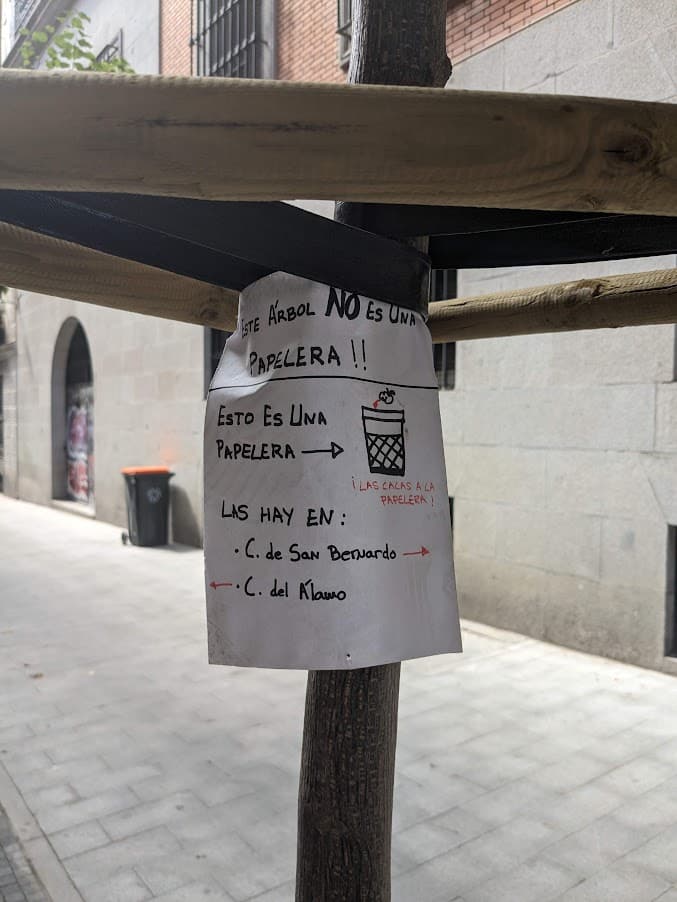 ESTE ÁRBOL NO ES UNA
PAPELERA !!
ESTO ES UNA
PAPELERA →
¡LAS CACAS A LA
PAPELERA!
LAS HAY EN:
· C. de San Bernardo →
← · C. del Álamo